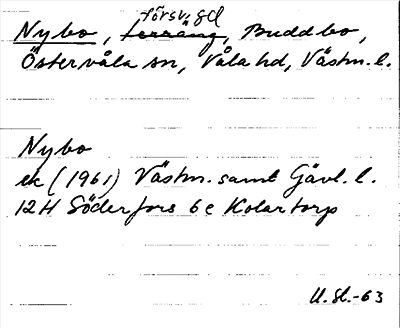 försv. gd
Nybo, terräng, Buddbo,
Östervåla sn, Våla hd, Västm. l.
Nybo
ek (1961) Västm. samt Gävl. l.
12H Söderfors 6c Kolartorp
U. Sl.-63